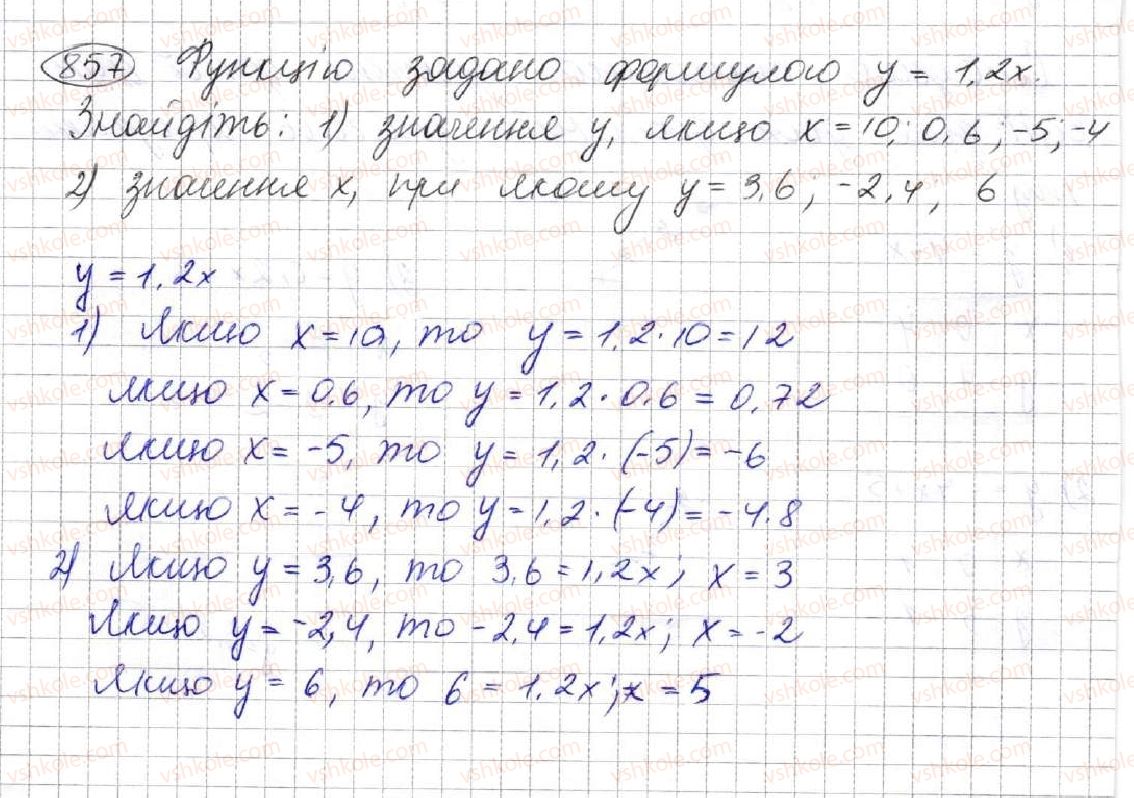 857 Функцію задано формулою y = 1,2x.
Знайдіть: 1) значення y, якщо x = 10; 0,6; -5; -4
2) значення x, при якому y = 3,6; -2,4; 6
y = 1,2x
1) Якщо x = 10, то y = 1,2 · 10 = 12
Якщо x = 0,6, то y = 1,2 · 0,6 = 0,72
Якщо x = -5, то y = 1,2 · (-5) = -6
Якщо x = -4, то y = 1,2 · (-4) = -4,8
2) Якщо y = 3,6, то 3,6 = 1,2x; x = 3
Якщо y = -2,4, то -2,4 = 1,2x; x = -2
Якщо y = 6, то 6 = 1,2x; x = 5
vshkole.com